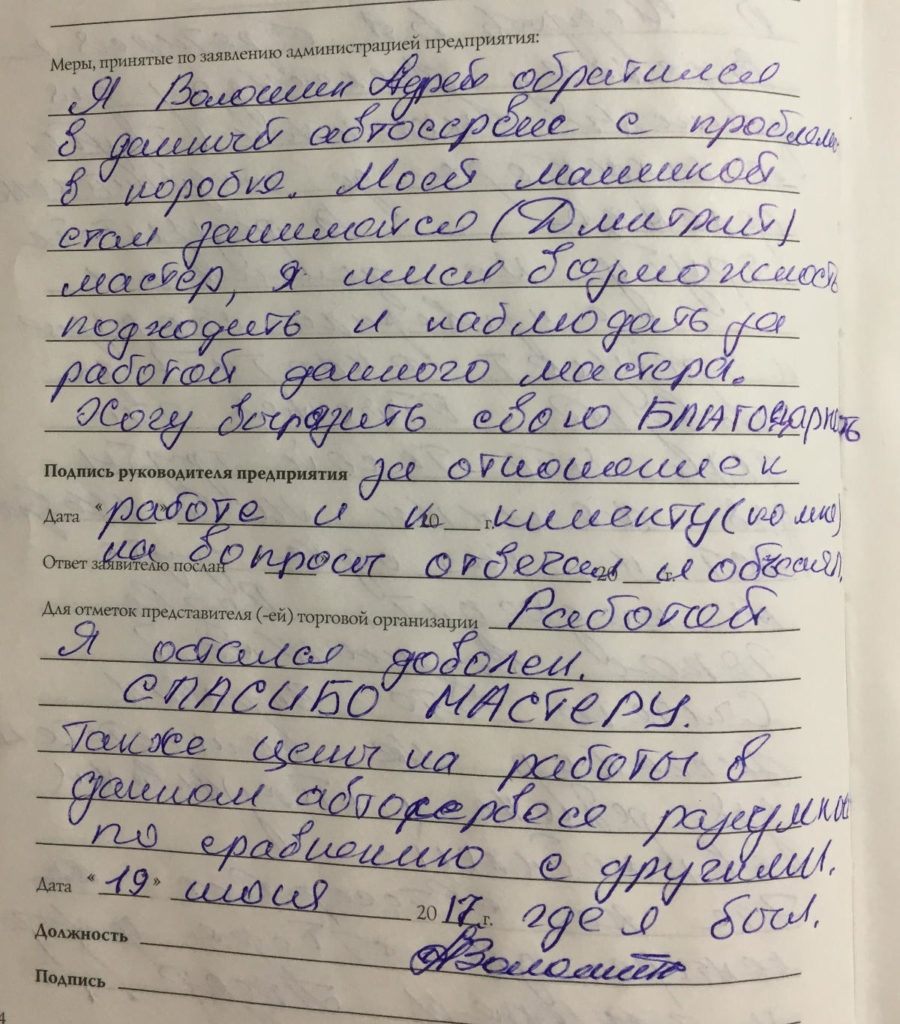 Меры, принятые по заявлению администрацией предприятия:
Я Волошин Адрей обратился
в данный автосервис с проблема
в коробке. Моей машиной
стал занимайтся (Дмитрий)
мастер, я имел возможность
подходить и наблюдать за
работой данного мастера.
Хочу выразить свою БЛАГОДАРНОСТЬ
Подпись руководителя предприятия за отношение к
Дата " работе и к 20 г. клиенту (ко мне)
Ответ заявителю послан на вопросы отвечал 20 г. и объяснял.
Для отметок представителя (-ей) торговой организации Работой
Я остался доволен.
СПАСИБО МАСТЕРУ.
Также цены на работы в
данном автосервесе разумные
по сравнению с другими.
Дата " 19 " июня 2017 г. где я был.
Должность
АВолошин
Подпись
4